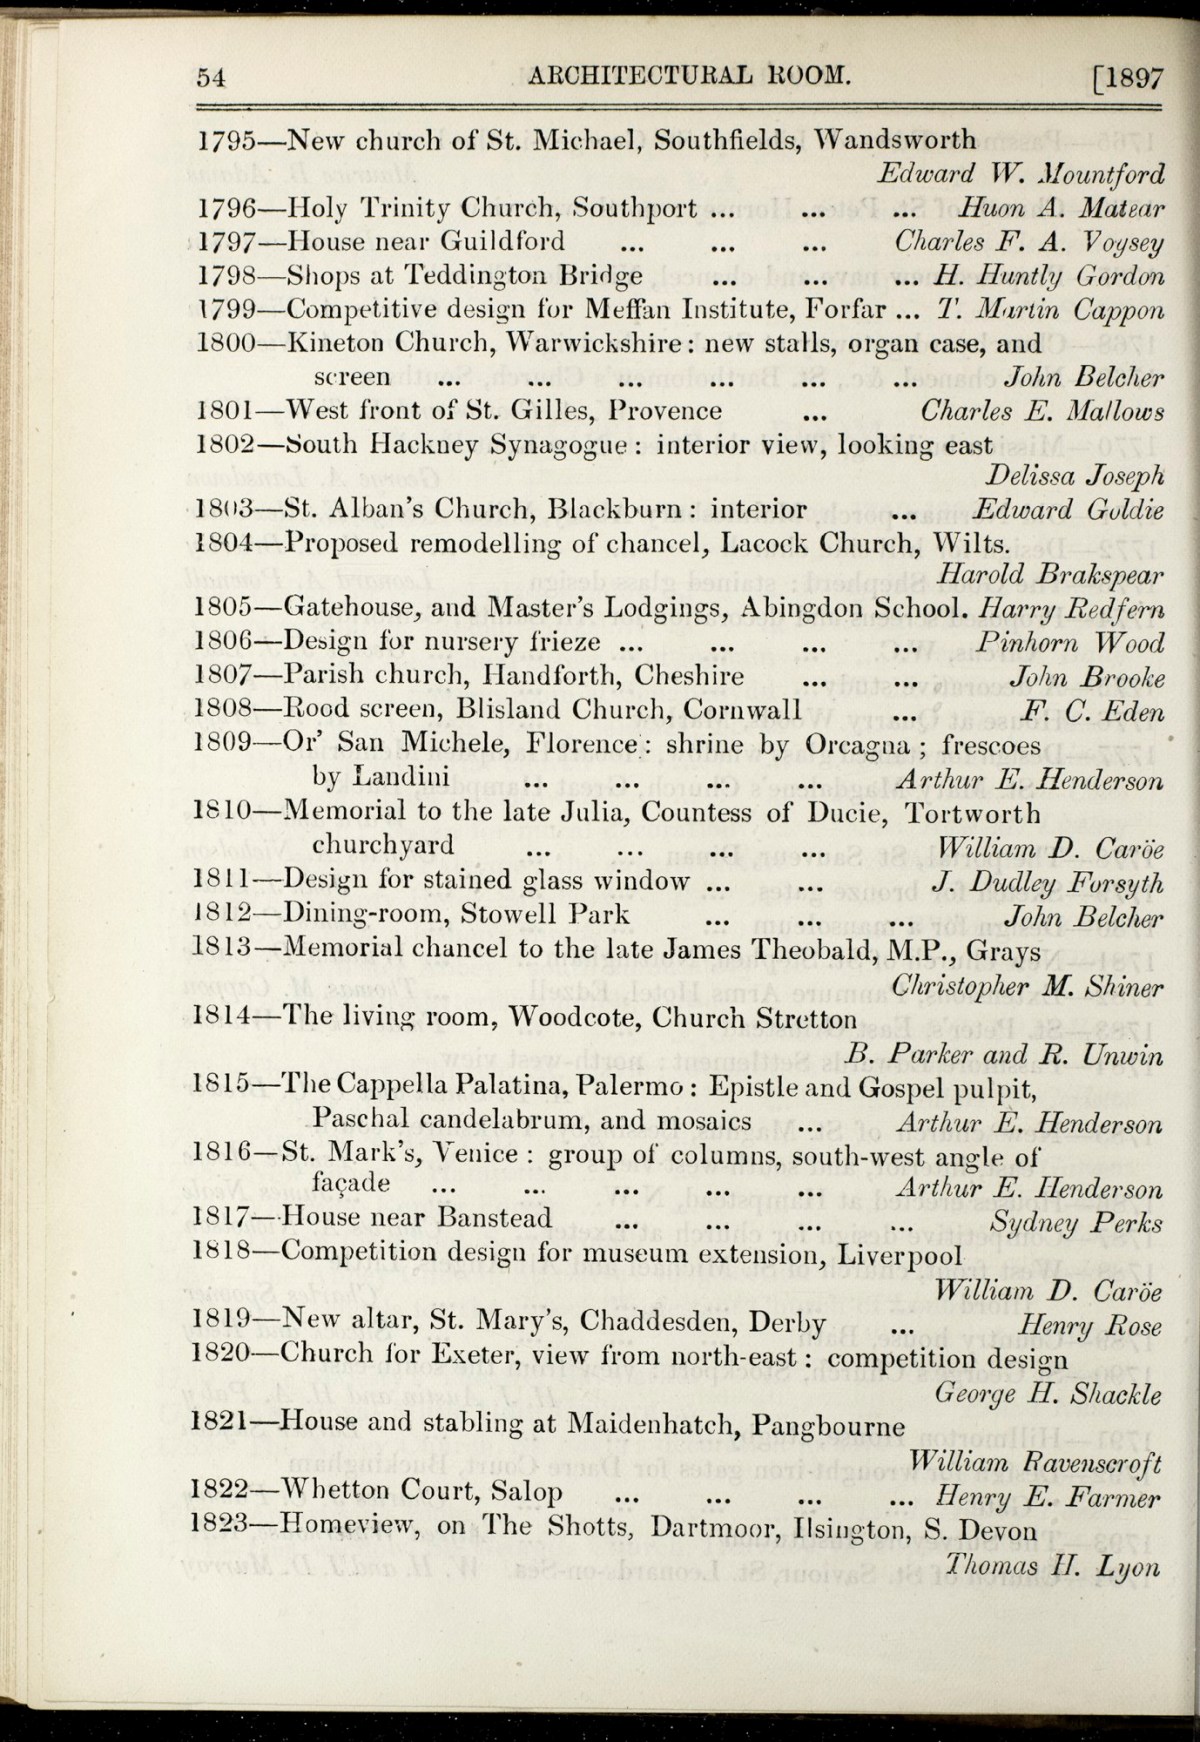 54 ARCHITECTURAL ROOM. [1897
1795—New church of St. Michael, Southfields, Wandsworth
Edward W. Mountford
1796—Holy Trinity Church, Southport ... ... ... Huon A. Matear
1797—House near Guildford ... ... ... Charles F. A. Voysey
1798—Shops at Teddington Bridge ... ... ... H. Huntly Gordon
1799—Competitive design for Meffan Institute, Forfar ... T. Martin Cappon
1800—Kineton Church, Warwickshire: new stalls, organ case, and
screen ... ... ... ... ... ... John Belcher
1801—West front of St. Gilles, Provence ... Charles E. Mallows
1802—South Hackney Synagogue: interior view, looking east
Delissa Joseph
1803—St. Alban's Church, Blackburn: interior ... Edward Goldie
1804—Proposed remodelling of chancel, Lacock Church, Wilts.
Harold Brakspear
1805—Gatehouse, and Master's Lodgings, Abingdon School. Harry Redfern
1806—Design for nursery frieze ... ... ... ... Pinhorn Wood
1807—Parish church, Handforth, Cheshire ... ... John Brooke
1808—Rood screen, Blisland Church, Cornwall ... F. C. Eden
1809—Or' San Michele, Florence: shrine by Orcagna; frescoes
by Landini ... ... ... ... Arthur E. Henderson
1810—Memorial to the late Julia, Countess of Ducie, Tortworth
churchyard ... ... ... ... William D. Caröe
1811—Design for stained glass window ... ... J. Dudley Forsyth
1812—Dining-room, Stowell Park ... ... ... John Belcher
1813—Memorial chancel to the late James Theobald, M.P., Grays
Christopher M. Shiner
1814—The living room, Woodcote, Church Stretton
B. Parker and R. Unwin
1815—The Cappella Palatina, Palermo: Epistle and Gospel pulpit,
Paschal candelabrum, and mosaics ... Arthur E. Henderson
1816—St. Mark's, Venice: group of columns, south-west angle of
façade ... ... ... ... ... Arthur E. Henderson
1817—House near Banstead ... ... ... ... Sydney Perks
1818—Competition design for museum extension, Liverpool
William D. Caröe
1819—New altar, St. Mary's, Chaddesden, Derby ... Henry Rose
1820—Church for Exeter, view from north-east: competition design
George H. Shackle
1821—House and stabling at Maidenhatch, Pangbourne
William Ravenscroft
1822—Whetton Court, Salop ... ... ... ... Henry E. Farmer
1823—Homeview, on The Shotts, Dartmoor, Ilsington, S. Devon
Thomas H. Lyon